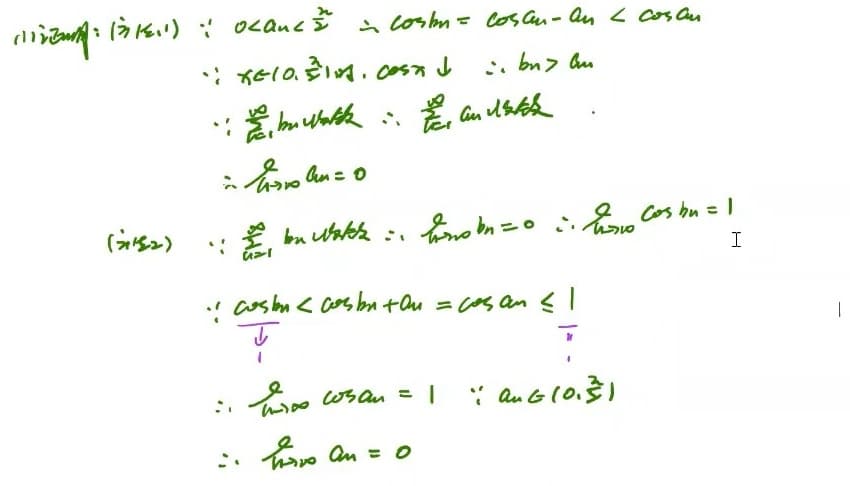 (1)证明:(方法1) ∵ 0<an<π/2 ∴ cosbn = cosan - an < cosan
∵ x∈(0,π/2)时, cosx↓ ∴ bn > an
∵ ∑_{n=1}^{∞} bn收敛 ∴ ∑_{n=1}^{∞} an收敛
∴ lim_{n→∞} an = 0
(方法2) ∵ ∑_{n=1}^{∞} bn收敛 ∴ lim_{n→∞} bn = 0 ∴ lim_{n→∞} cosbn = 1
∵ cosbn < cosbn + an = cosan ≤ 1
↓ "
1 1
∴ lim_{n→∞} cosan = 1 ∵ an∈(0,π/2)
∴ lim_{n→∞} an = 0